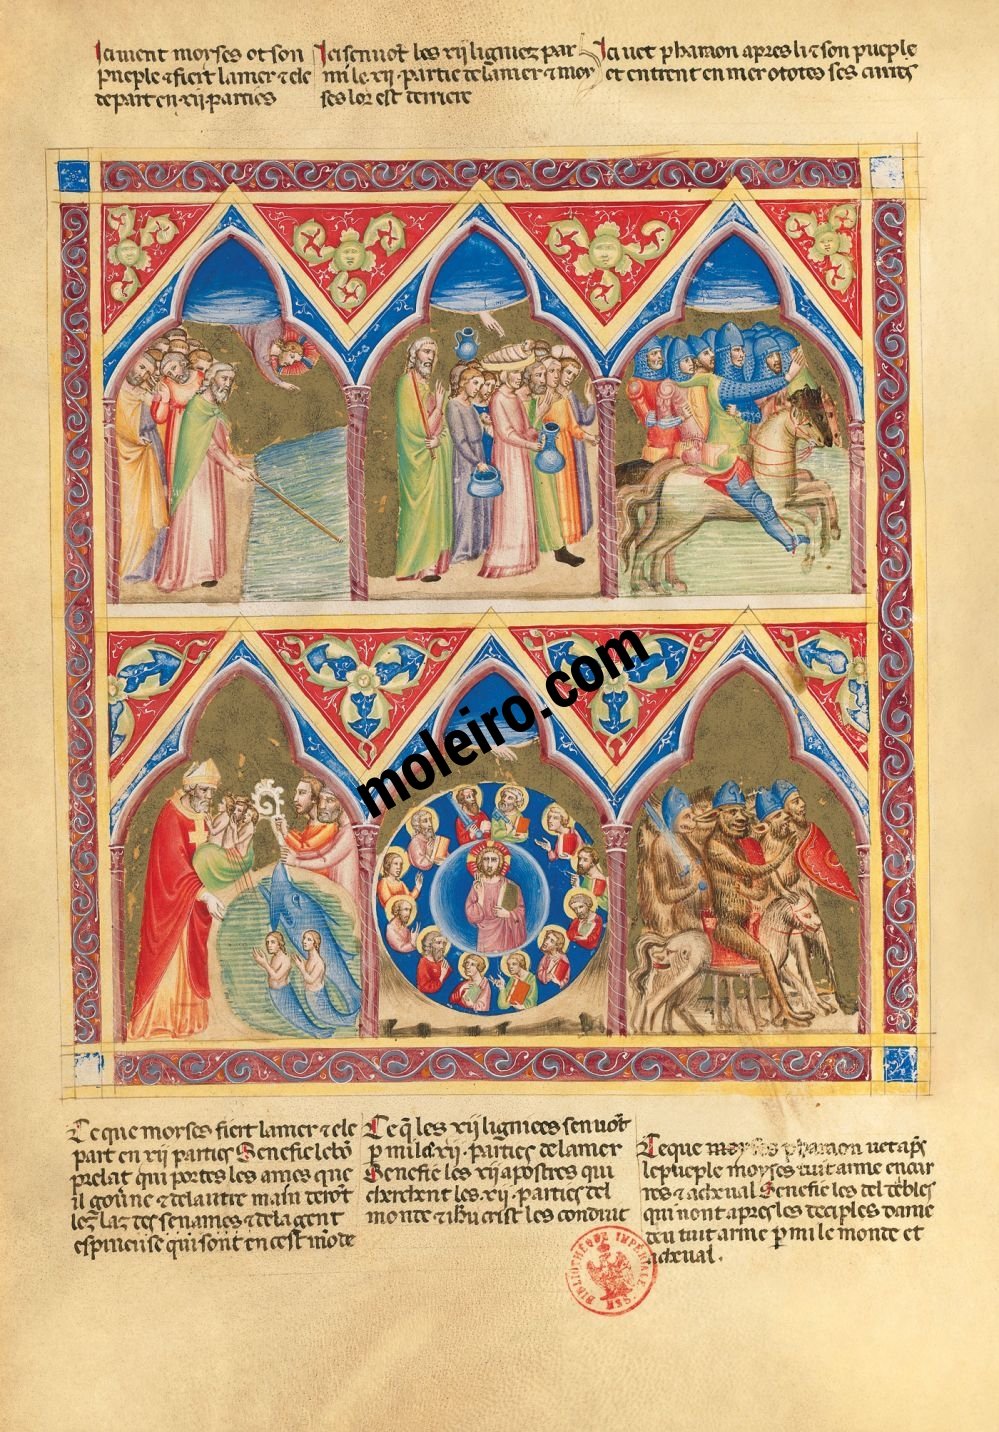 Ici vient moyses ot son
pueple & fiert la mer & ele
depart en .xii. parties
Ici sen vot les xii ligniez par
mi le .xii. partie de la mer & moy
ses lor est derriere
Ici vet pharaon apres li & son pueple
et entrent en mer o totes ses
moleiro.com
Ce que moyses fiert la mer & ele
part en xii parties Senefie le bō
prelat qui portes les ames que
il gouṽne & de lautre main deront
les laz des senames & de la gent
espineuse qui sont en cest mōde
Ce q̄ les xii ligniees sen vōt
p mi les xii . parties de la mer
Senefie les xii apostres qui
cherchent les .xii . parties del
monde & ihu crist les conduit
Ce que pharaon vet ap̄s
le pueple moyses tuit arme en cur
res & a cheual Senefie les deables
qui vont apres les deciples dame
deu tuit arme p mi le monde et
a cheual .
BIBLIOTHÈQUE IMPÉRIALE MSS.